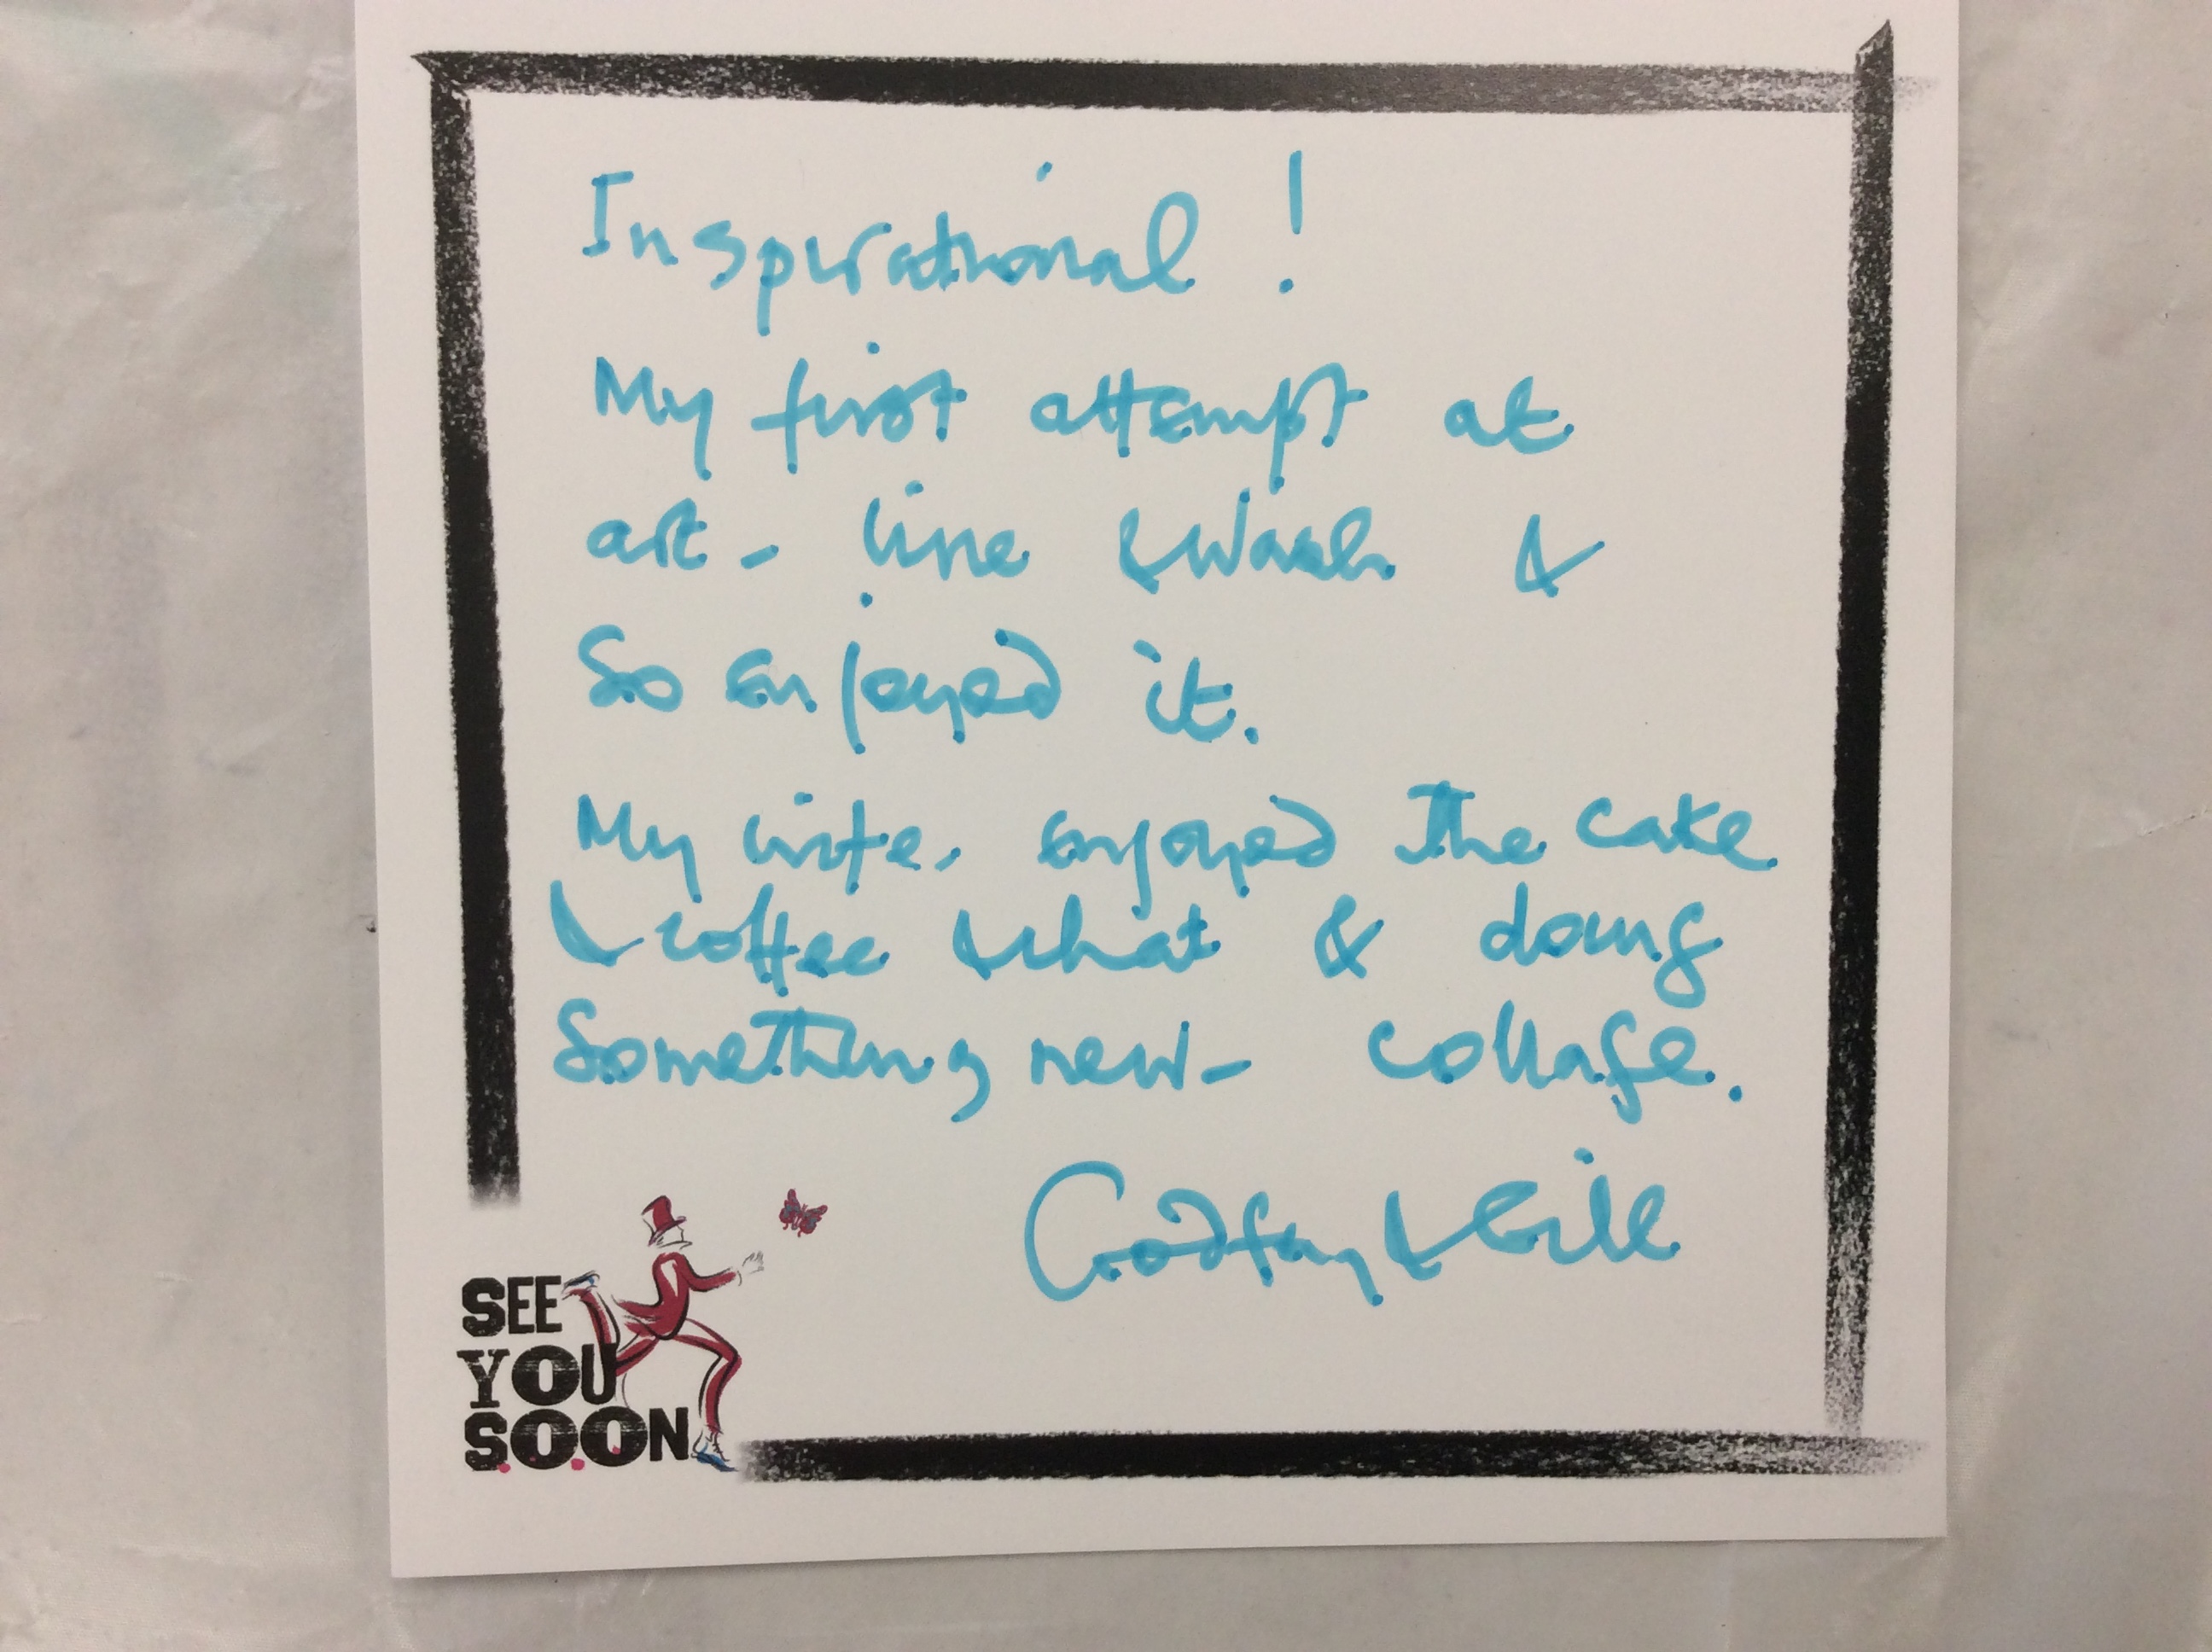 Inspirational !
My first attempt at
art - line & Wash &
So enjoyed it.
My wife, enjoyed The cake
& coffee & chat & doing
Something new - collage.
Godfrey & Gill
SEE
YOU
SOON